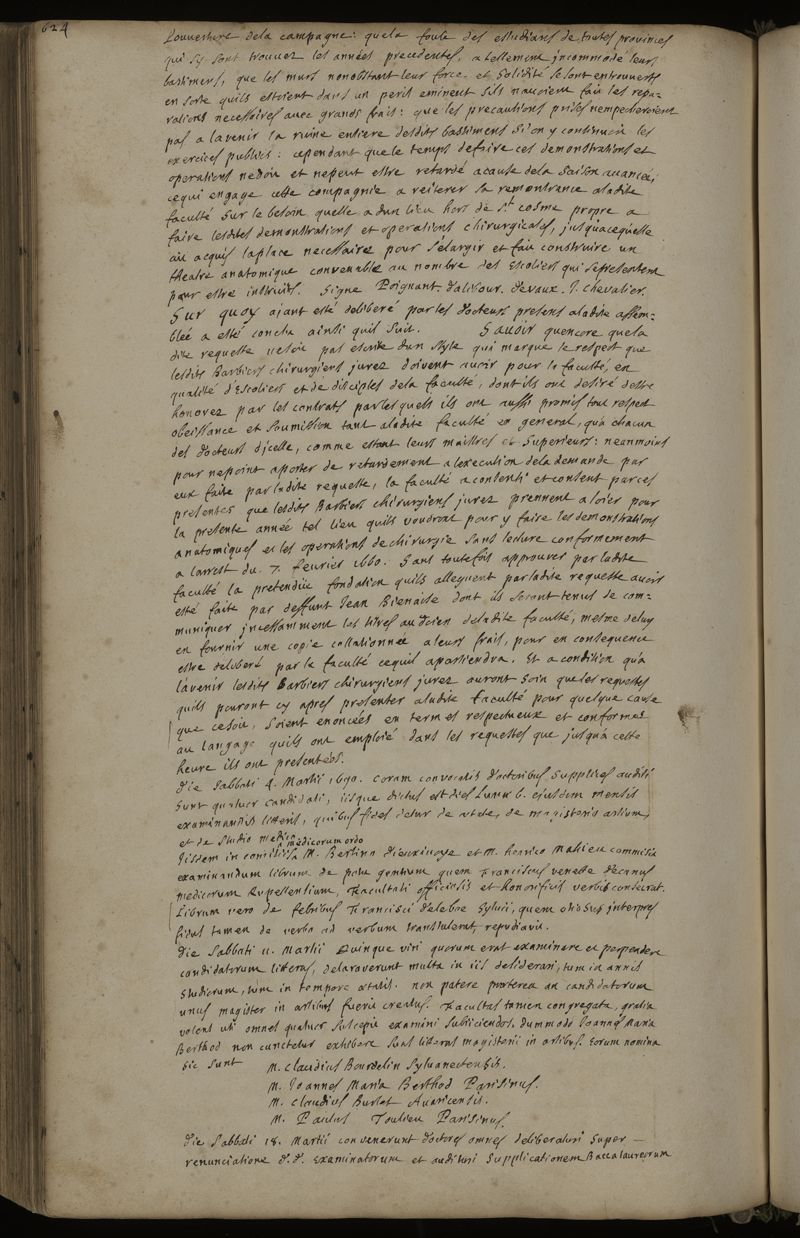 624
Louverture dela campagne: quela foule des estudians de toutes provinces
qui sy sont trouvez les années precedentes, a tellement jncommodé leurs
bastimens, que les murs nonobstant leur force et solidité se sont entrouverts
en sorte quils estoient dans un peril eminent sils navoient fait les repa-
rations necessaires avec grands frais: que les precautions prises nempecheroient
pas a lavenir la ruine entiere desdits bastiments si on y continuoit les
exercices publics: cependant que le temps defaire ces demonstrations et
operations nedoit et nepeut estre retardé acause dela saison avancée,
cequi engage cette compagnie a reiterer sa remontrance aladite
faculté sur le besoin quelle a dun lieu hors de St cosme propre a
faire lesdites demonstrations et operations chirurgicales, jusquacequelle
ait acquis laplace necessaire pour selargir et fait construire un
theatre anatomique convenable au nombre des Escoliers qui sepresentent
pour estre instruits. Signe Poignant. Dalivour. Devaux. J. Chevalier.
Sur quoy ajant esté deliberé par les docteurs presens aladite assem-
blée a esté conclu ainsi quil suit. Savoir quencore quela
dite requeste nesoit pas escrite dun style qui marque le respect que
lesdits Barbiers chirurgiens jurez doivent avoir pour la faculté, en
qualité d'Escoliers et de disciples dela faculté, dont ils ont desiré destre
honorez par les contrats par lesquels ils ont aussi promis tout respect
obeissance et soumission tant aladite faculté en general, qua chacun
des docteurs djcelle, comme estant leurs maistres et superieurs: neanmoins
pour nepoint aporter de retardement a lexecution dela demande par
eux faite par ladite requeste, la faculté a consenti et consent par ces
presentes que lesdits Barbiers chirurgiens jurez prennent a loier pour
la presente année tel lieu quils voudront pour y faire les demonstrations
anatomiques et les operations de chirurgie sans lecture conformement
a larrest du. 7. fevrier 1660. Sans toutefois approuver par ladite
faculté la pretendue fondation quils alleguent par ladite requeste avoir
esté faite par deffunt Jean Bienaise dont ils seront tenus de com-
muniquer jncessamment les titres au doien deladite faculté, mesme deluy
en fournir une copie collationnée a leurs frais, pour en consequence
estre deliberé par la faculté cequil apartiendra. Et a condition qua
lavenir lesdits Barbiers chirurgiens jurez auront soin que les requestes
quils pouront cy apres presenter aladite faculté pour quelque cause
que cesoit, soient enoncées en termes respectueux et conformes
au langage quils ont emploié dans les requestes que jusqua cette
heure ils ont presentées.
die Sabbati 4. Martii 1690. coram convocatis doctoribus supplices auditi
sunt quatuor candidati, iisque dictus est dies Lunæ 6. ejusdem mensis
examinandis litteris, quibus fides detur de ætate, de magisterio artium,
et de studio medico.
medicorum ordo
Jisdem in comitiis M. Bertino Dieuxivoye et M. henrico Mahieu commisit
examinandum librum de potu gentium quem Franciscus venette decanus
medicorum Rupellensium, Facultati officiosis et honorificis verbis consecrat.
Librum vero de febribus Francisci deleboe sylvii, quem interpres
fidus tamen de verbo ad verbum transtulerat, repudiavit.
die Sabbati 11. Martii Quinque viri quorum erat examinare et perpendere
candidatorum litteras, declaraverunt multa in iis desiderari, tum in annis
studiorum, tum in tempore ætatis. non patere præterea an candidatorum
unus magister in artibus fuerit creatus. Facultas tamen congregata, gratis
volens uti omnes quatuor suscepit examini subjiciendos, dummodo Joannes Maria
Berthod non cunctetur exhibere suas litteras magisterii in artibus. Eorum nomina
sic sunt M. Claudius Bourdelin Sylvanectensis.
M. Joannes Maria Berthod Parisinus.
M. Claudius Burlat Avaricensis.
M. Paulus Toulieu Parisinus.
die Sabbati 18. Martii convenerunt doctores omnes deliberaturi super
renunciatione D. D. Examinatorum et audituri supplicationem Baccalaureorum